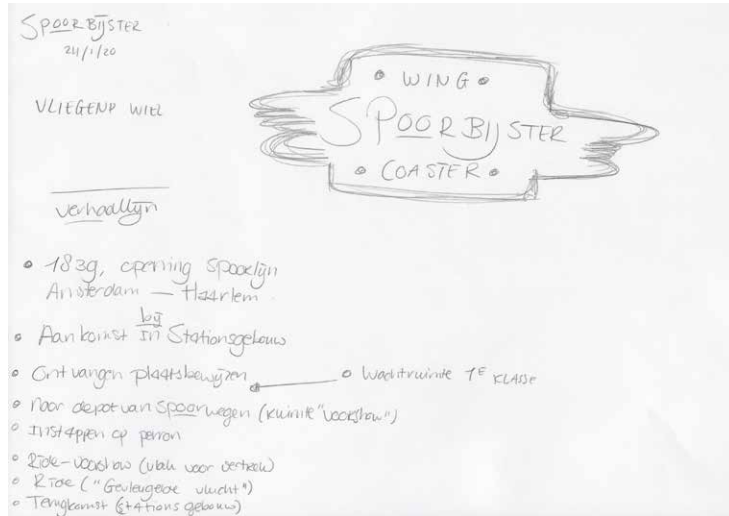 SPOORBIJSTER
24/1/20
VLIEGEND WIEL
WING
SPOORBIJSTER
COASTER
verhaallijn
1839, opening spoorlijn
Amsterdam — Haarlem
bij
Aankomst in Stationsgebouw
Ontvangen plaatsbewijzen
Wachtruimte 1E KLASSE
Naar depot van Spoorwegen (ruimte "voorshow")
Instappen op perron
Ride-voorshow (vlak voor vertrek)
Ride ("Gevleugelde vlucht")
Terugkomst (stationsgebouw)